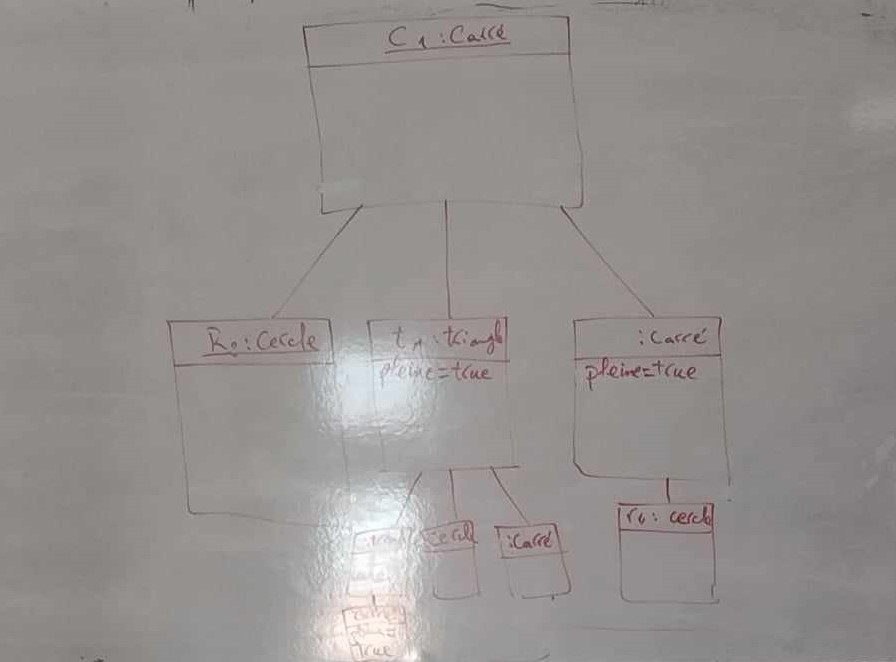 C1:Carré
R0:Cercle
t1:triangle
pleine=true
:Carré
pleine=true
cercle
:Carré
r4: cercle
true